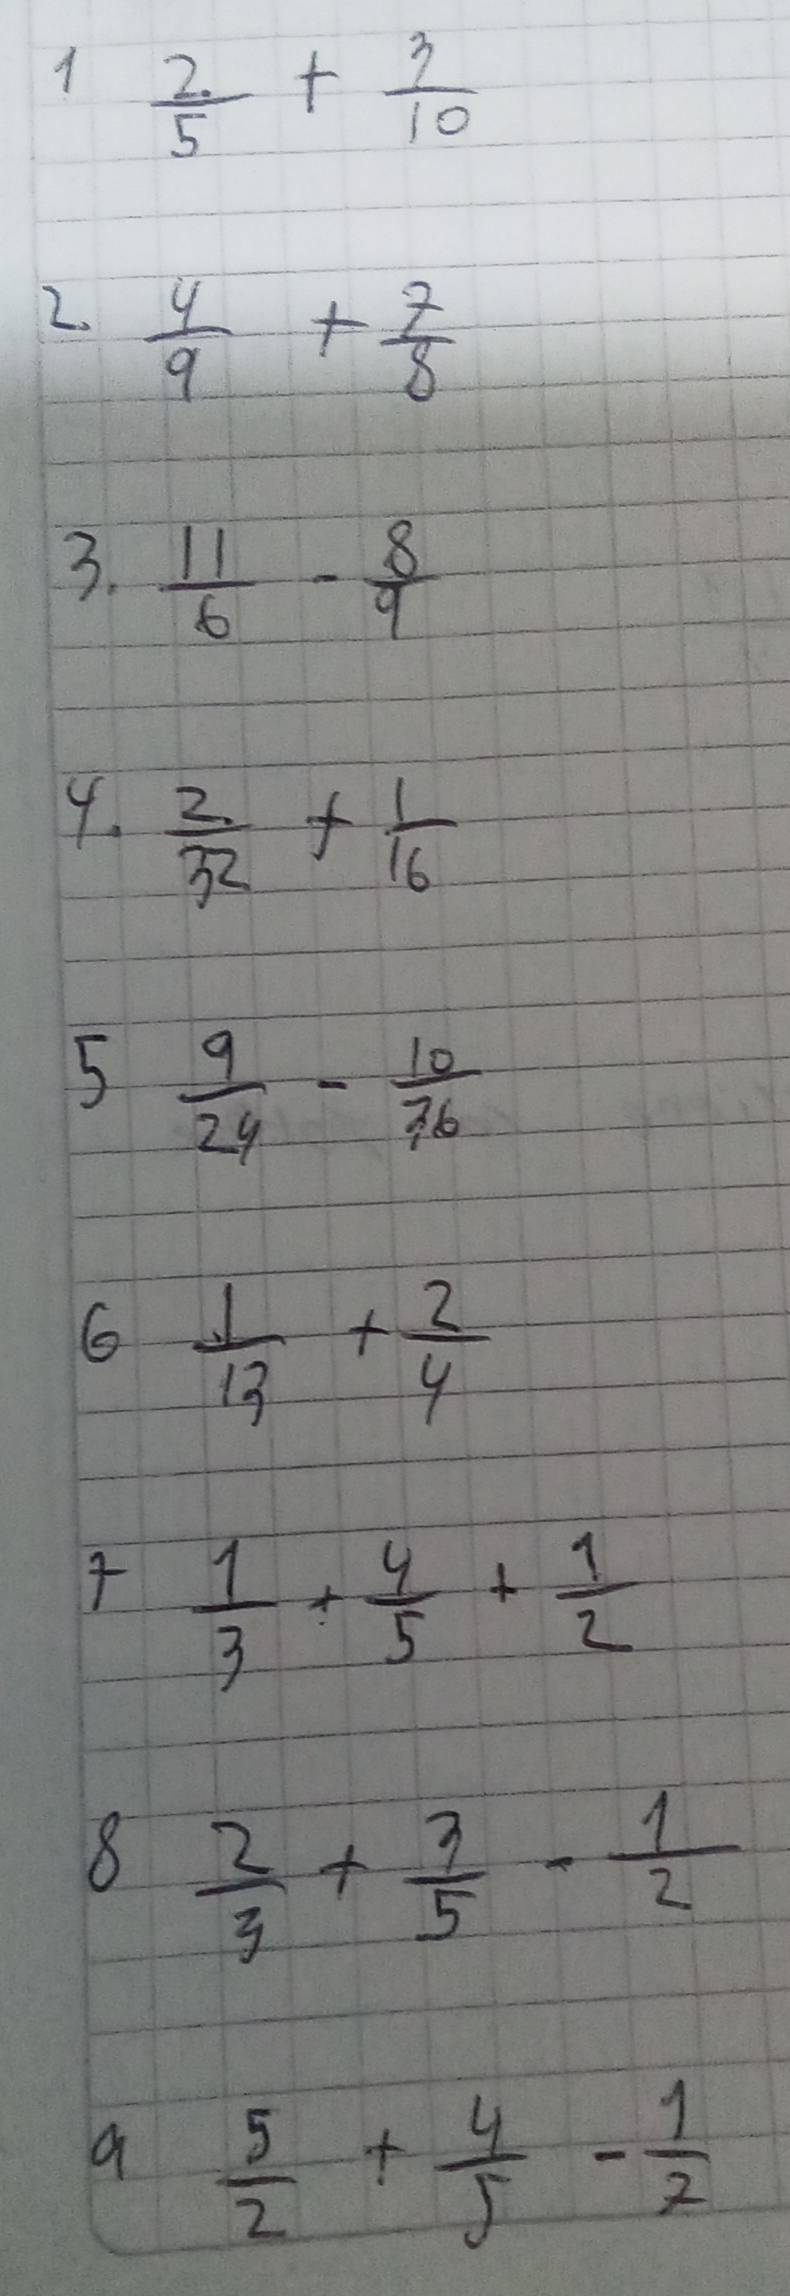 1 2/5 + 3/10
2. 4/9 + 7/8
3. 11/6 - 8/9
4. 2/32 + 1/16
5 9/24 - 10/36
6 1/13 + 2/4
7 1/3 + 4/5 + 1/2
8 2/3 + 3/5 - 1/2
9 5/2 + 4/5 - 1/2